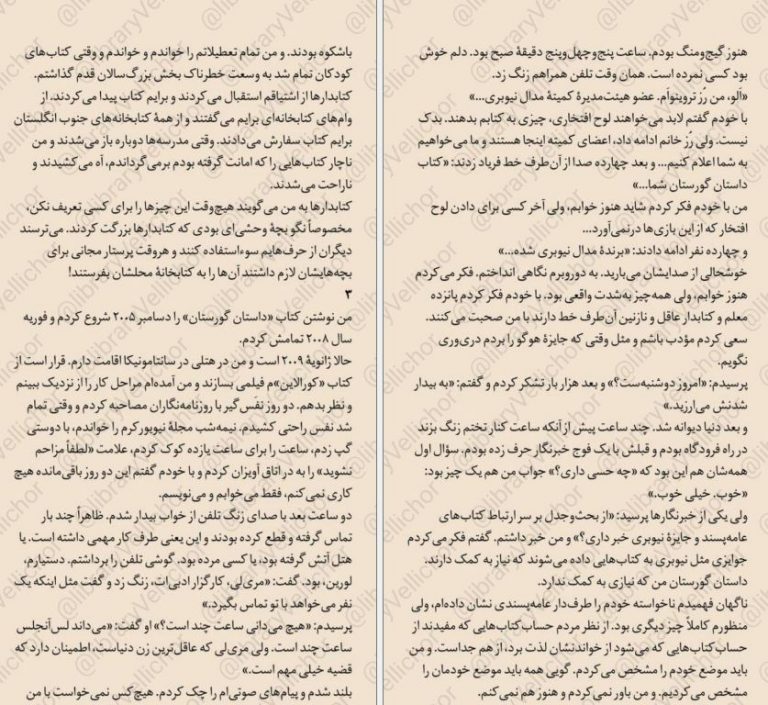 باشکوه بودند. و من تمام تعطیلاتم را خواندم و خواندم و وقتی کتاب‌های
کودکان تمام شد به وسعت خطرناک بخش بزرگ‌سالان قدم گذاشتم.
کتابدارها از اشتیاقم استقبال می‌کردند و برایم کتاب پیدا می‌کردند. از
وام‌های کتابخانه‌ای برایم می‌گفتند و از همهٔ کتابخانه‌های جنوب انگلستان
برایم کتاب سفارش می‌دادند. وقتی مدرسه‌ها دوباره باز می‌شدند و من
ناچار کتاب‌هایی را که امانت گرفته بودم برمی‌گرداندم، آه می‌کشیدند و
ناراحت می‌شدند.
کتابدارها به من می‌گویند هیچ‌وقت این چیزها را برای کسی تعریف نکن،
مخصوصاً نگو بچهٔ وحشی‌ای بودی که کتابدارها بزرگت کردند. می‌ترسند
دیگران از حرف‌هایم سوءاستفاده کنند و هروقت پرستار مجانی برای
بچه‌هایشان لازم داشتند آن‌ها را به کتابخانهٔ محلشان بفرستند!
۳
من نوشتن کتاب «داستان گورستان» را دسامبر ۲۰۰۵ شروع کردم و فوریه
سال ۲۰۰۸ تمامش کردم.
حالا ژانویهٔ ۲۰۰۹ است و من در هتلی در سانتامونیکا اقامت دارم. قرار است از
کتاب «کورالاین»م فیلمی بسازند و من آمده‌ام مراحل کار را از نزدیک ببینم
و نظر بدهم. دو روز نفس گیر با روزنامه‌نگاران مصاحبه کردم و وقتی تمام
شد نفس راحتی کشیدم. نیمه‌شب مجلهٔ نیویورکرم را خواندم، با دوستی
گپ زدم، ساعت را برای ساعت یازده کوک کردم، علامت «لطفاً مزاحم
نشوید» را به در اتاق آویزان کردم و با خودم گفتم این دو روز باقی‌مانده هیچ
کاری نمی‌کنم، فقط می‌خوابم و می‌نویسم.
دو ساعت بعد با صدای زنگ تلفن از خواب بیدار شدم. ظاهراً چند بار
تماس گرفته و قطع کرده بودند و این یعنی طرف کار مهمی داشته است. یا
هتل آتش گرفته بود، یا کسی مرده بود. گوشی تلفن را برداشتم. دستیارم،
لورین، بود. گفت: «مری‌لی، کارگزار ادبی‌ات، زنگ زد و گفت مثل اینکه یک
نفر می‌خواهد با تو تماس بگیرد.»
پرسیدم: «هیچ می‌دانی ساعت چند است؟» او گفت: «می‌داند لس‌آنجلس
ساعت چند است. ولی مری‌لی که عاقل‌ترین زن دنیاست، اطمینان دارد که
قضیه خیلی مهم است.»
بلند شدم و پیام‌های صوتی‌ام را چک کردم. هیچ‌کس نمی‌خواست با من
هنوز گیج‌ومنگ بودم. ساعت پنج‌وچهل‌وپنج دقیقهٔ صبح بود. دلم خوش
بود کسی نمرده است. همان وقت تلفن همراهم زنگ زد.
«اَلو، من رُز تروینواَم. عضو هیئت‌مدیرهٔ کمیتهٔ مدال نیوبری...»
با خودم گفتم لابد می‌خواهند لوح افتخاری، چیزی به کتابم بدهند. بدک
نیست. ولی رُز خانم ادامه داد، اعضای کمیته اینجا هستند و ما می‌خواهیم
به شما اعلام کنیم... و بعد چهارده صدا از آن‌طرف خط فریاد زدند: «کتاب
داستان گورستان شما...»
من با خودم فکر کردم شاید هنوز خوابم، ولی آخر کسی برای دادن لوح
افتخار که از این بازی‌ها درنمی‌آورد...
و چهارده نفر ادامه دادند: «برندهٔ مدال نیوبری شده...»
خوشحالی از صدایشان می‌بارید. به دوروبرم نگاهی انداختم. فکر می‌کردم
هنوز خوابم، ولی همه‌چیز به‌شدت واقعی بود. با خودم فکر کردم پانزده
معلم و کتابدار عاقل و نازنین آن‌طرف خط دارند با من صحبت می‌کنند.
سعی کردم مؤدب باشم و مثل وقتی که جایزهٔ هوگو را بردم دری‌وری
نگویم.
پرسیدم: «امروز دوشنبه‌ست؟» و بعد هزار بار تشکر کردم و گفتم: «به بیدار
شدنش می‌ارزید.»
و بعد دنیا دیوانه شد. چند ساعت پیش از آنکه ساعت کنار تختم زنگ بزند
در راه فرودگاه بودم و قبلش با یک فوج خبرنگار حرف زده بودم. سؤال اول
همه‌شان هم این بود که «چه حسی داری؟» جواب من هم یک چیز بود:
«خوب. خیلی خوب.»
ولی یکی از خبرنگارها پرسید: «از بحث‌وجدل بر سر ارتباط کتاب‌های
عامه‌پسند و جایزهٔ نیوبری خبر داری؟» و من خبر داشتم. گفتم فکر می‌کردم
جوایزی مثل نیوبری به کتاب‌هایی داده می‌شوند که نیاز به کمک دارند.
داستان گورستان من که نیازی به کمک ندارد.
ناگهان فهمیدم ناخواسته خودم را طرف‌دار عامه‌پسندی نشان داده‌ام، ولی
منظورم کاملاً چیز دیگری بود. از نظر مردم حساب کتاب‌هایی که مفیدند از
حساب کتاب‌هایی که می‌شود از خواندنشان لذت برد، از هم جداست. و من
باید موضع خودم را مشخص می‌کردم. گویی همه باید موضع خودمان را
مشخص می‌کردیم. و من باور نمی‌کردم و هنوز هم نمی‌کنم.
@libraryVellichor